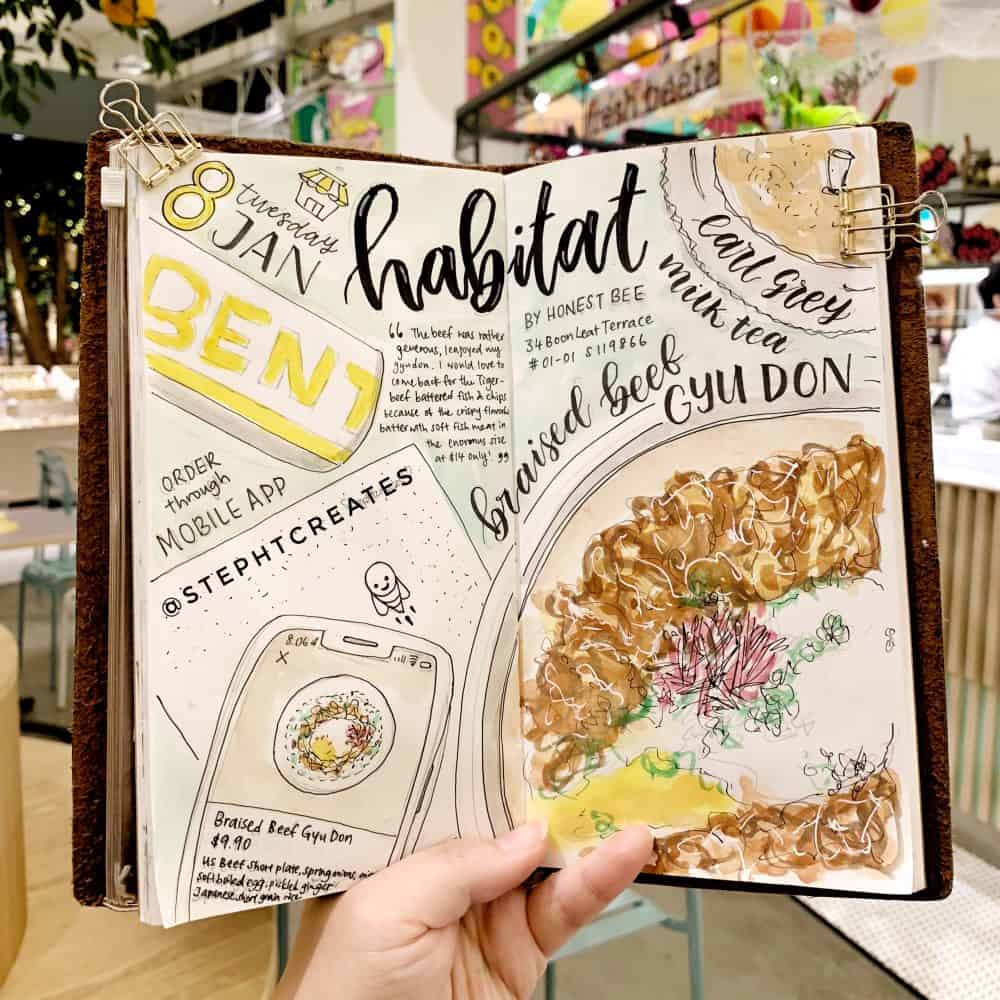 8
tuesday
JAN
habitat
BENT
“ The beef was rather
generous, I enjoyed my
gyudon. I would love to
come back for the Tiger-
beef battered fish & chips
because of the crispy
batter with soft fish meat in
the enormous size
at $14 only! ”
ORDER
through
MOBILE APP
@STEPHTCREATES
8:06
X
Braised Beef Gyu Don
$9.90
US Beef short plate, spring onions,
soft boiled egg, pickled ginger
Japanese short grain rice
BY HONEST BEE
34 Boon Leat Terrace
#01-01 S119866
earl grey
milk tea
braised beef
GYU DON
fresh beets